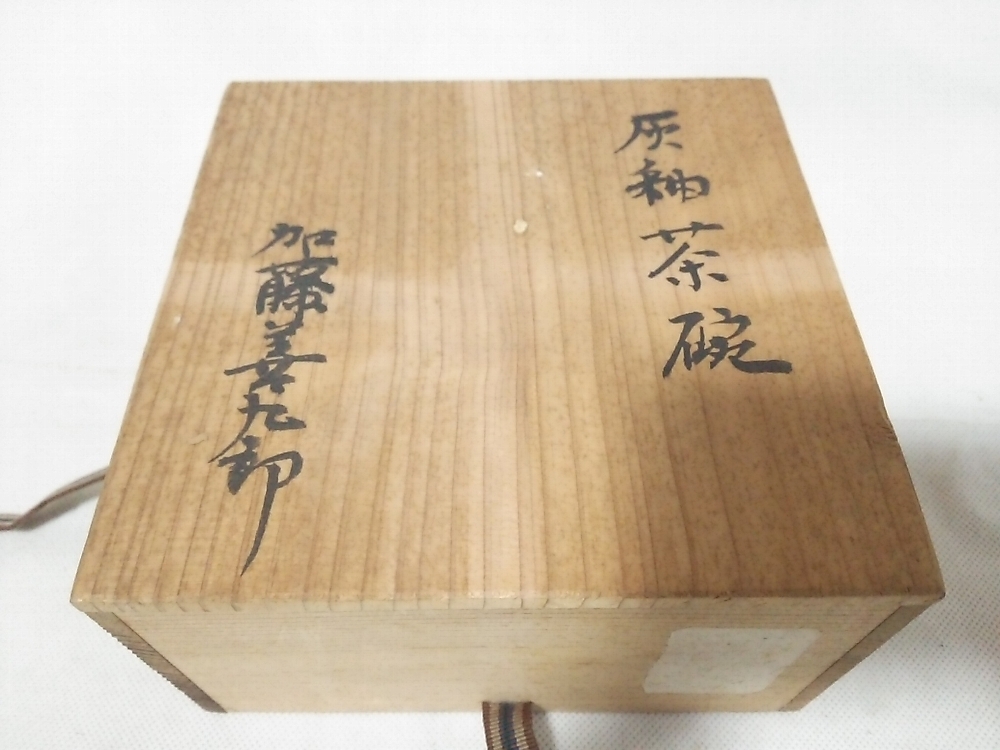 灰釉茶碗
加藤善九郎